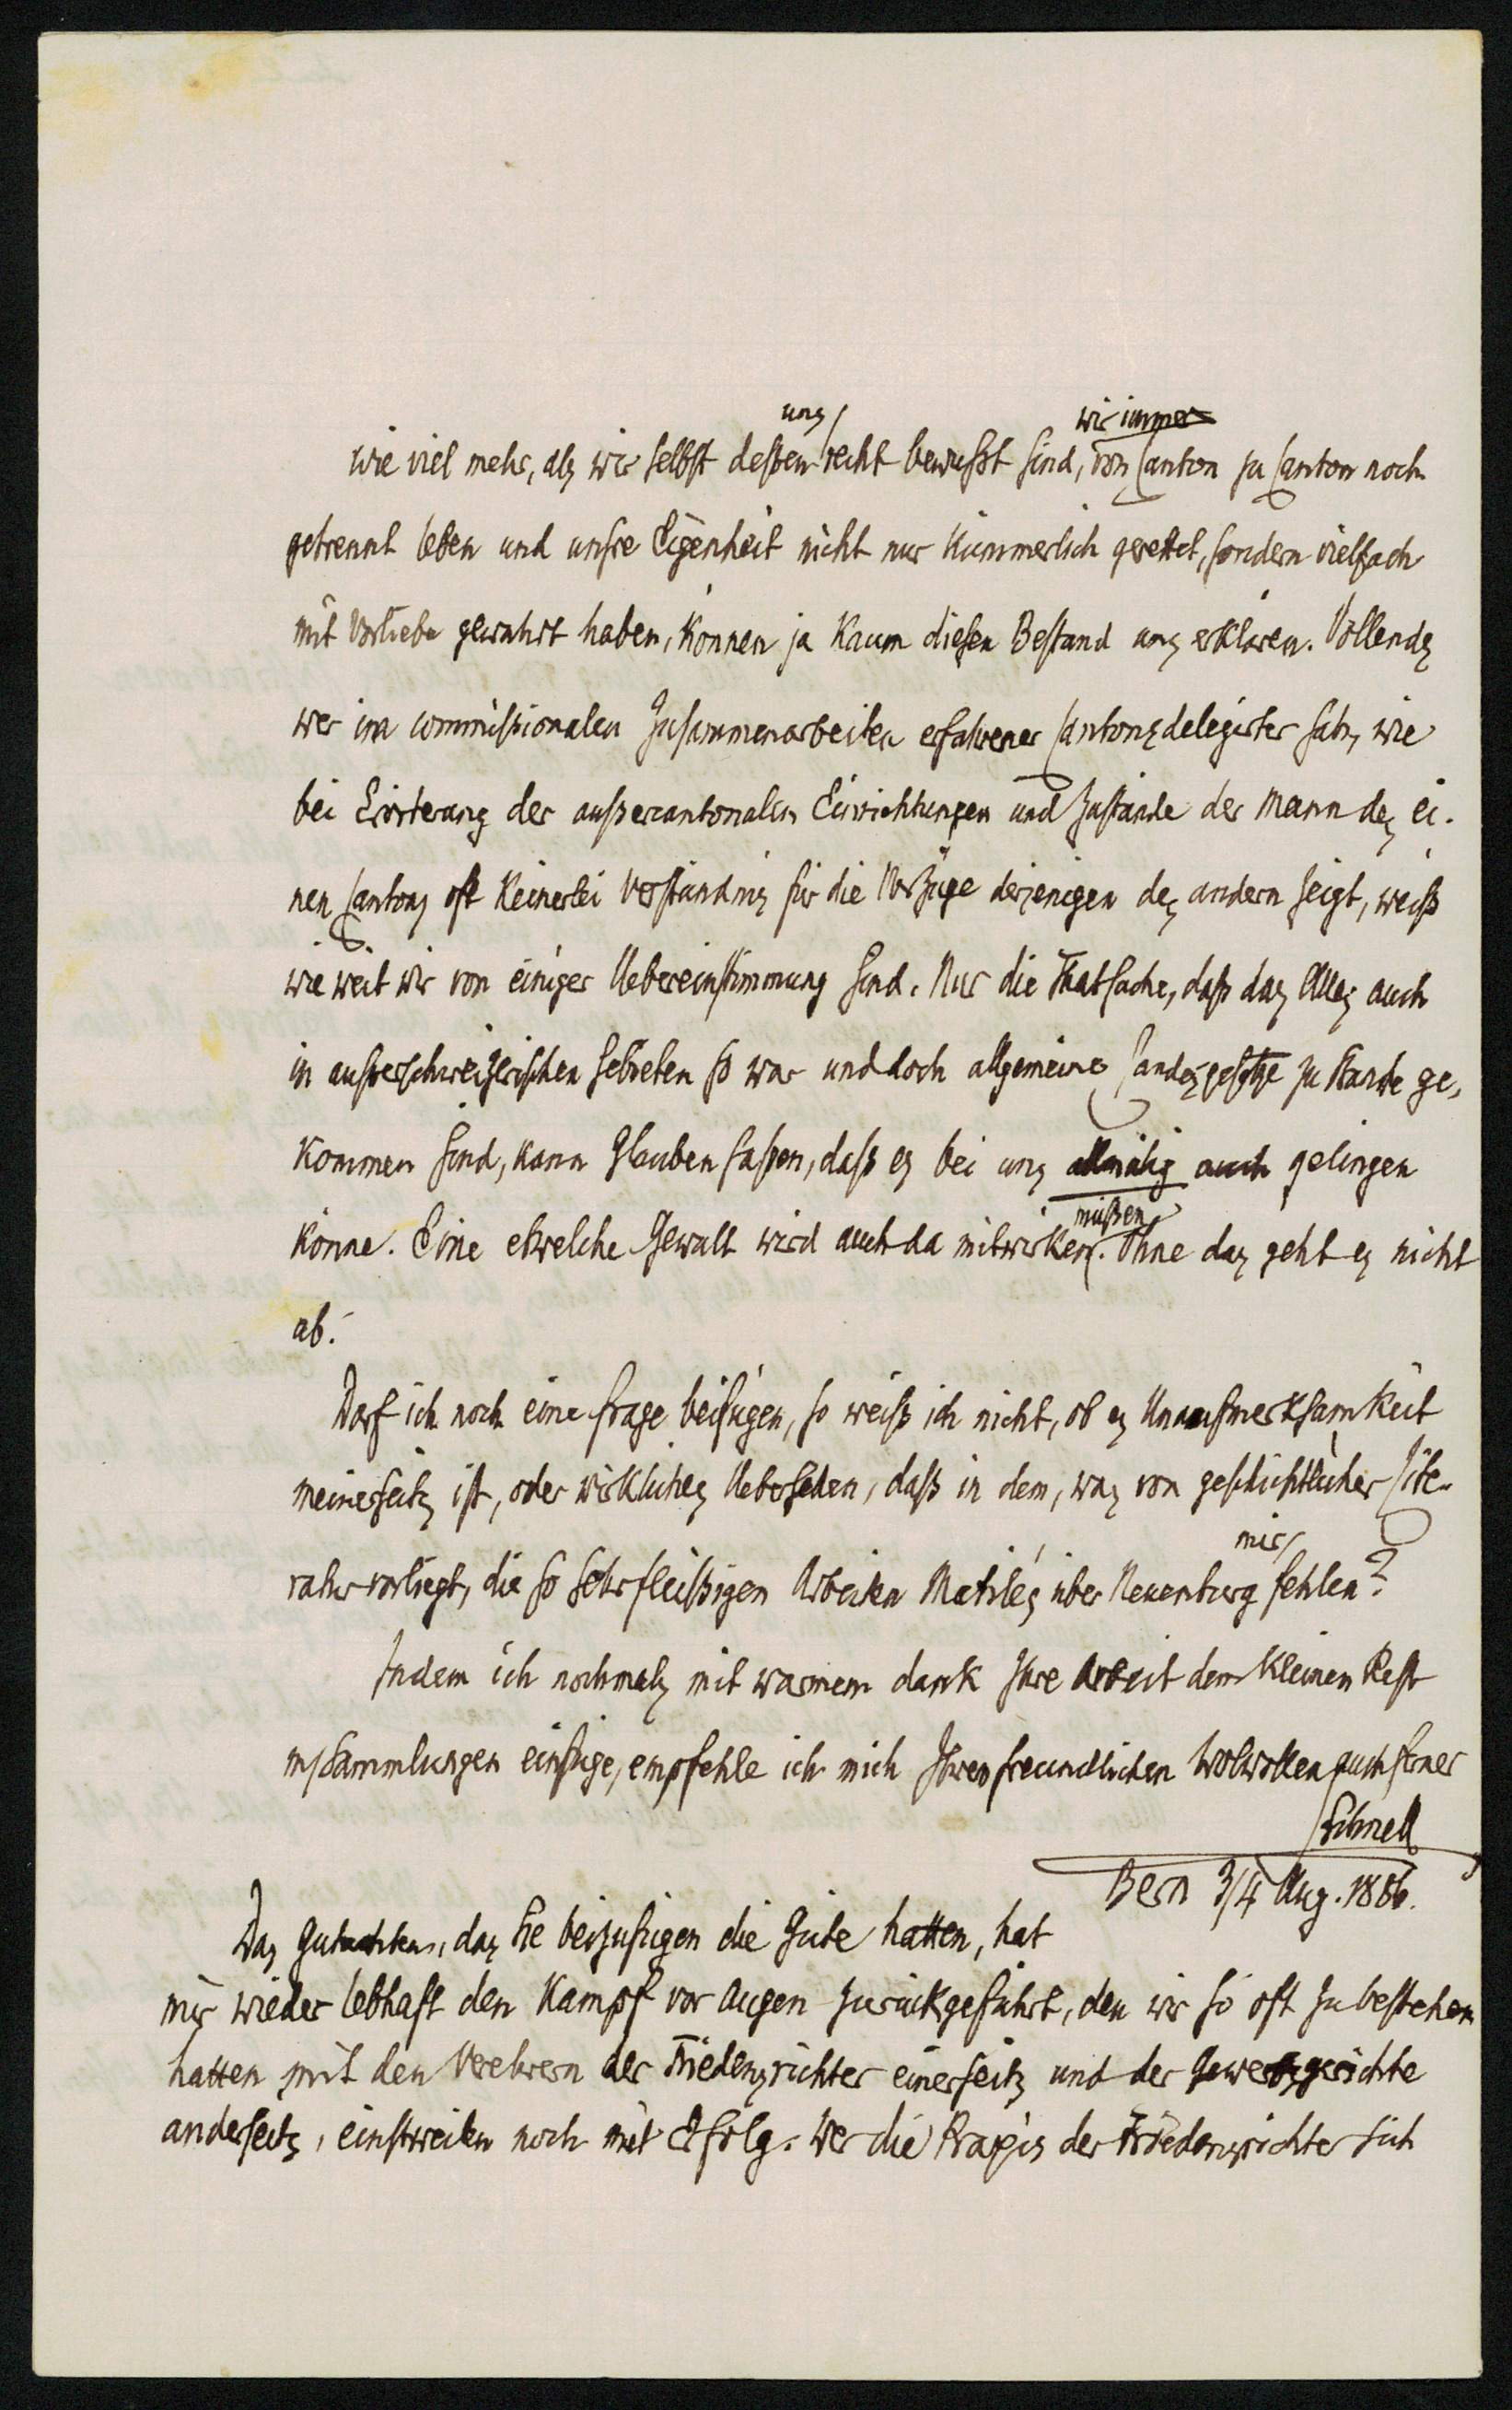 wie viel mehr, als wir selbst dessen uns recht bewußt sind, wir immer von Canton zu Canton noch
getrennt leben und unsre Eigenheit nicht nur kümmerlich gerettet, sondern vielfach
mit Vorliebe gewahrt haben, können ja kaum diesen Bestand uns erklären. Vollends
wer im commissionalen Zusammenarbeiten erfahrener Cantonsdelegirter sah, wie
bei Erörterung der außercantonalen Einrichtungen und Zustände der Mann des ei-
nen Cantons oft keinerlei Verständnis für die Vorzüge derjenigen des andern zeigt, weiß
wie weit wir von einiger Uebereinstimmung sind. Nur die Thatsache, daß das Alles auch
in außerschweizerischen Gebieten so war und doch allgemeine Landesgesetze zu Stande ge-
kommen sind, kann Glauben fassen, daß es bei uns allmälig auch gelingen
könne. Eine etwelche Gewalt wird auch da mitwirken müßen. Ohne das geht es nicht
ab.
Darf ich noch eine Frage beifügen, so weiß ich nicht, ob es Unaufmerksamkeit
meinerseits ist, oder wirkliches Uebersehen, daß in dem, was von geschichtlicher Lite-
ratur vorliegt, die so sehr fleißigen Arbeiten Matile's über Neuenburg mir fehlen?
Indem ich nochmals mit warmem dank Ihre Arbeit dem kleinen Rest
m/Sammlungen einfüge, empfehle ich mich Ihrem freundlichen Wolwollen auch ferner
Schnell
Bern 3/4 Aug. 1886.
Das Gutachten, das Sie beizufügen die Güte hatten, hat
mir wieder lebhaft den Kampf vor Augen zurückgeführt, den wir so oft zu bestehen
hatten mit den Verehrern der Friedensrichter einerseits und der Gewerbsgerichte
anderseits, einstweilen noch mit Erfolg. Wer die Praxis der Friedensrichter sich